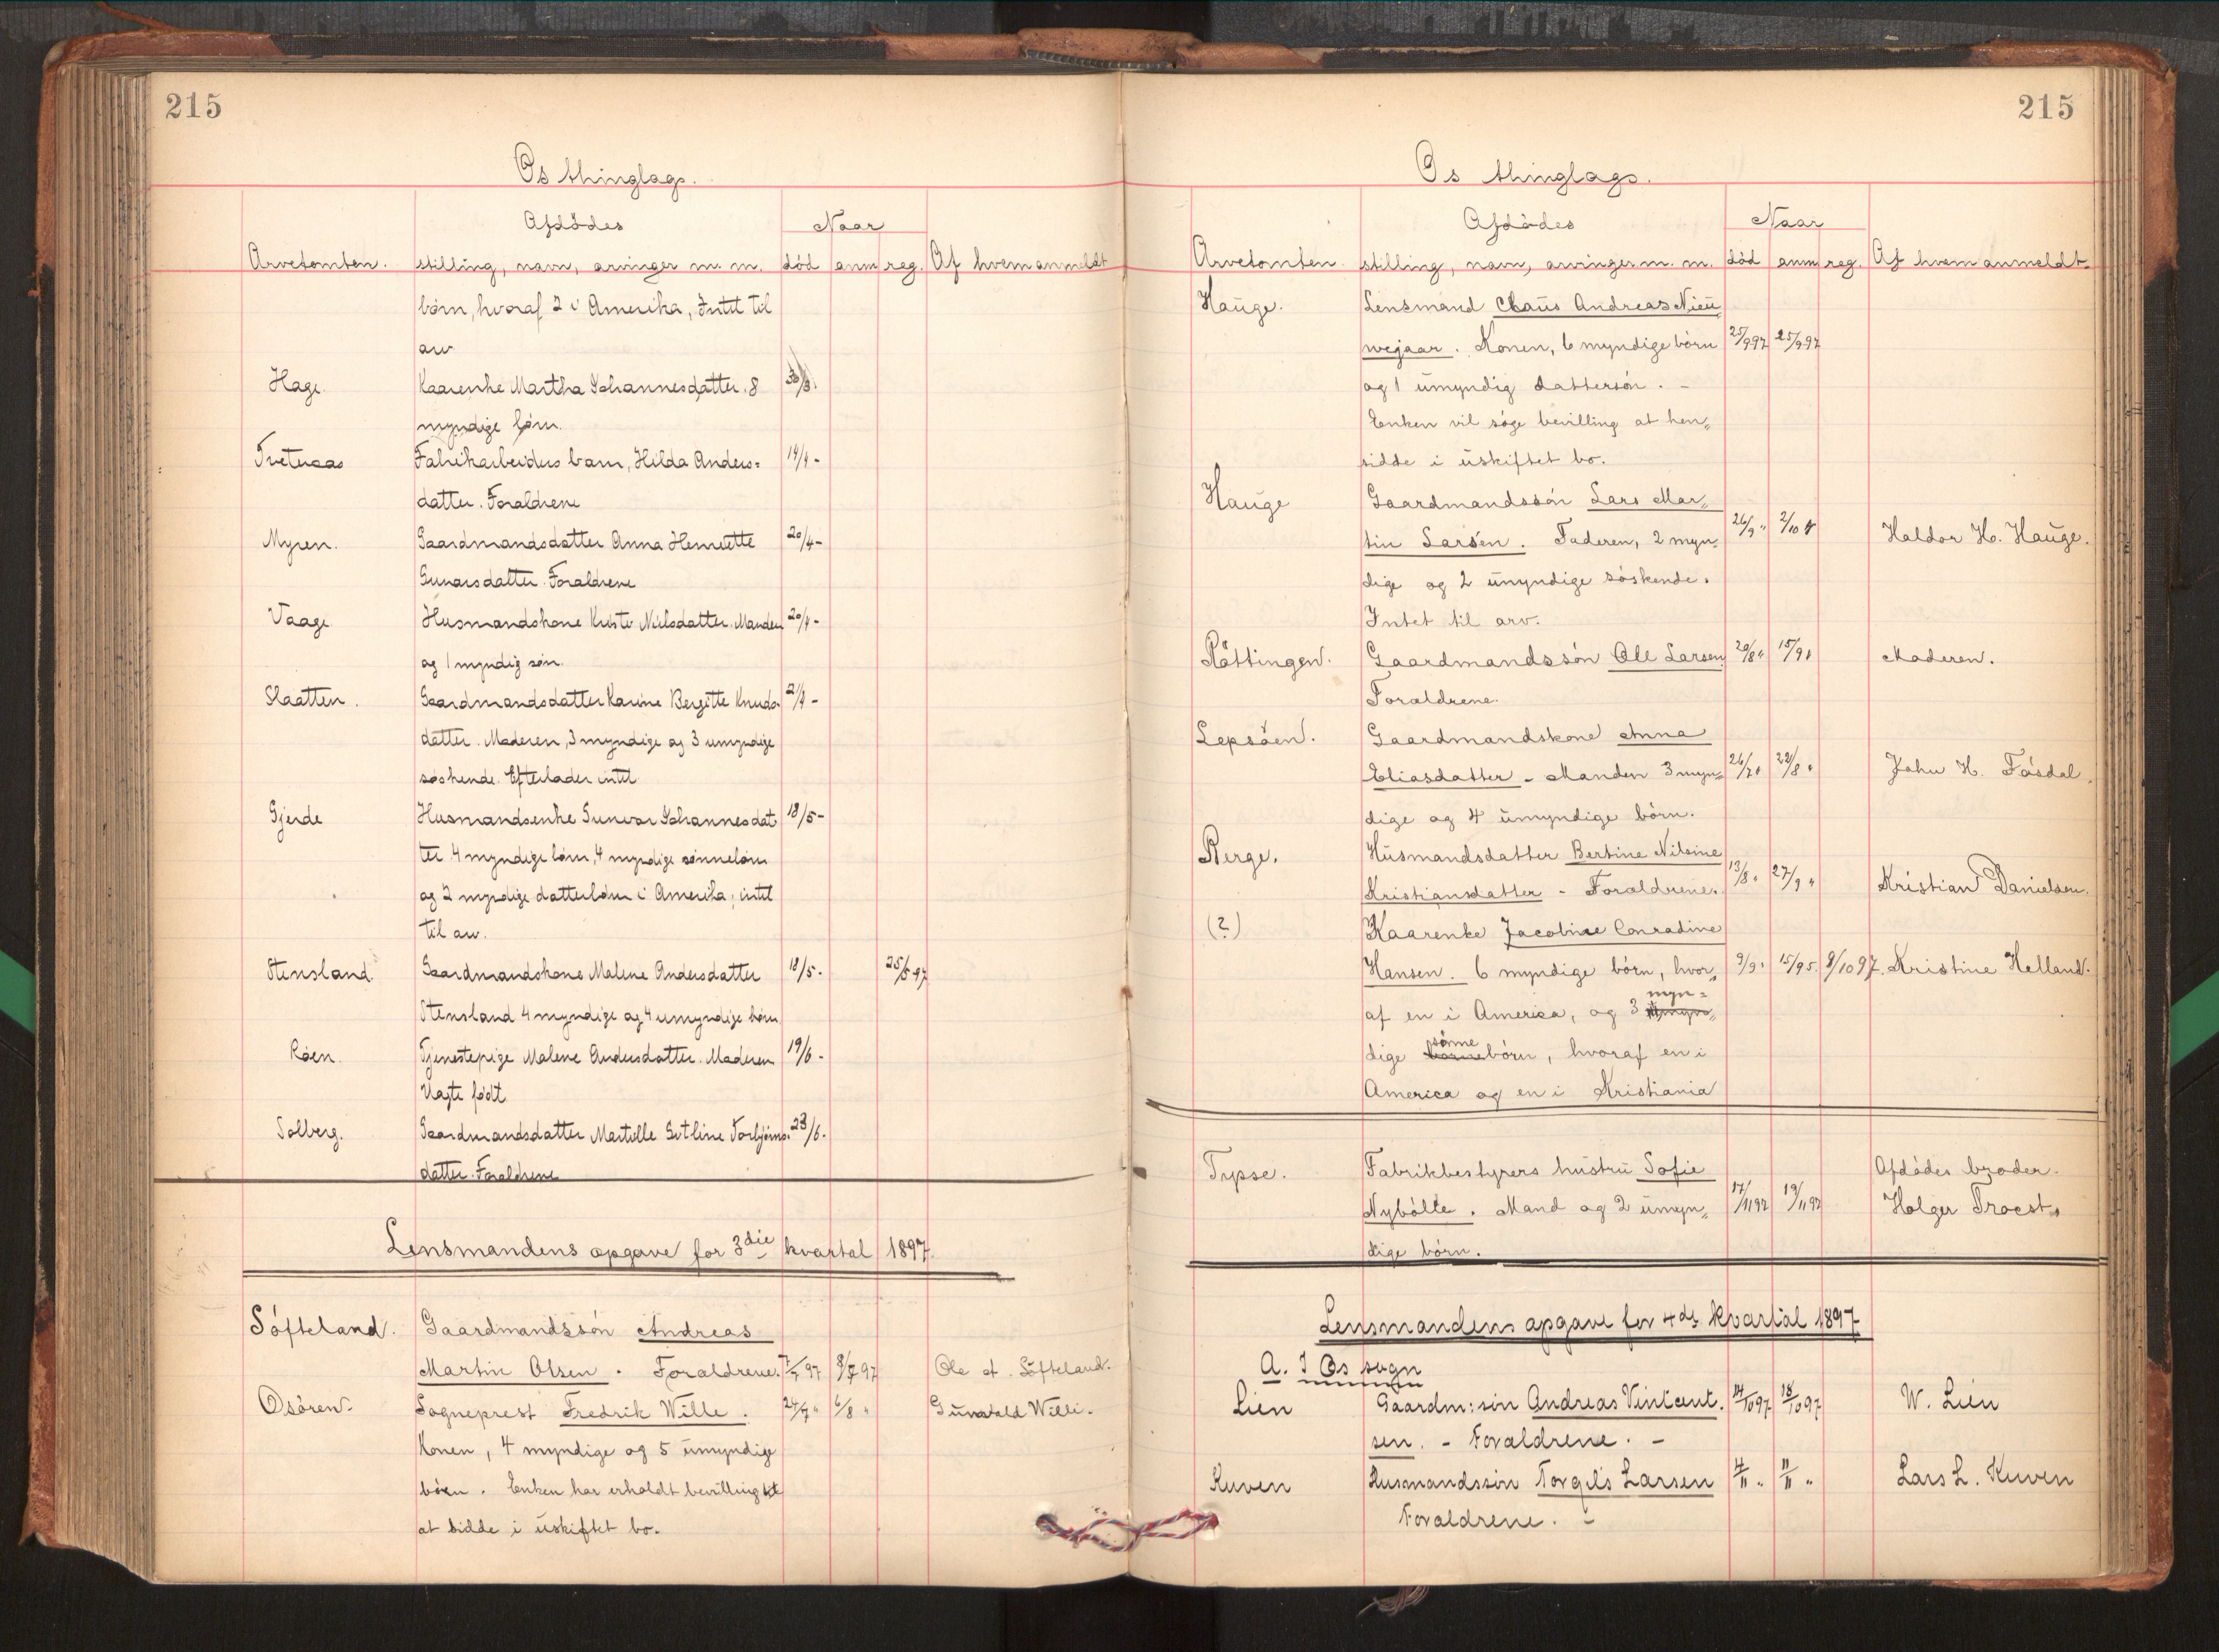 215
Os thinglags.
Afdödes
Naar
Arvetomten.
stilling, navn, arvinger m. m.
död
anm
reg.
Af hvem anmeldt
børn, hvoraf 2 i Amerika, Intet til
arv
Hage
Kaarenke Martha Johannesdatter. 8
30/3.
myndige børn.
Tveteraas
Fabrikarbeiders barn, Hilda Anders=
19/4 -
datter. Forældrene
Myren.
Gaardmandsdatter Anna Henriette
20/4 -
Gunarsdatter. Forældrene
Vaage
Husmandskone Kristi Nielsdatter. Manden
20/4 -
og 1 myndig søn.
Slaatten.
Gaardmandsdatter Karine Bergitte Knuds-
2/4 -
datter. Moderen, 3 myndige og 3 umyndige
søskende. Efterlader intet
Gjerde
Husmandsenke Gunvor Johannesdat
18/5 -
ter. 4 myndige børn, 4 myndige sønnebørn
og 2 myndige datterbørn i Amerika; intet
til arv.
Stensland.
Gaardmandskone Malene Andersdatter
18/5 -
25/6 97
Stensland 4 myndige og 4 umyndige børn.
Røen.
Tjenestepige Malene Andersdatter. Moderen
19/6 -
Uægte født
Solberg.
Gaardmandsdatter Martelle Botline Torbjørns-
23/6.
datter. Forældrene
Lensmandens opgave for 3die kvartal 1897.
Söfteland.
Gaardmandssön Andreas
Martin Olsen. Forældrene.
7/7 97
8/7 97
Ole A. Söfteland.
Osören.
Sogneprest Fredrik Wille.
24/7 "
6/8 "
Konen, 4 myndige og 5 umyndige
börn. Enken har erholdt bevilling til
at sidde i uskiftet bo.
215
Os thinglags.
Afdödes
Naar
Arvetomten.
stilling, navn, arvinger m. m.
död
anm
reg.
Af hvem anmeldt
Hauge.
Lensmand Claus Andreas Nieu„
wejaar. Konen, 6 myndige börn
25/9 97
25/9 97
og 1 umyndig dattersön. -
Enken vil söge bevilling at hen„
sidde i uskiftet bo.
Hauge
Gaardmandssön Lars Mar„
tin Larsen. Faderen, 2 myn„
26/9 "
2/10 "
Haldor H. Hauge.
dige og 2 umyndige söskende.
Intet til arv.
Röttingen.
Gaardmandssön Ole Larsen
20/8 "
15/9 "
Moderen.
Forældrene.
Lepsöen.
Gaardmandskone Anna
Eliasdatter - Manden 3 myn„
26/7 "
22/8 "
John H. Tösdal.
dige og 4 umyndige börn.
Berge.
Husmandsdatter Bertine Nilsine
Kristiansdatter - Forældrene.
13/8 "
27/9 "
Kristian Danielsen.
(?)
Kaarenke Jacobine Conradine
Hansen. 6 myndige börn, hvor„
9/9 "
15/9 5.
9/10 97.
Kristine Helland.
myn=
af en i America, og 3 umyn„
sönne
dige börnebörn, hvoraf en i
America og en i Kristiania
Typse.
Fabrikbestyrers hustru Sofie
Afdödes broder.
Nybölle. Mand og 2 umyn„
17/11 97
19/11 97
Holger Troest.
dige börn.
Lensmandens opgave for 4de kvartal 1897
A. I Os sogn
Lien
Gaardm: søn Andreas Vincent.
14/10 97
18/10 97
W. Lien
sen. - Forældrene. -
Kuven
Husmandssøn Torgils Larsen
4/11 "
11/11 "
Lars L. Kuven
Forældrene. -